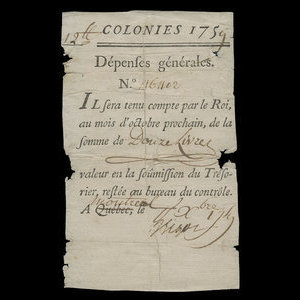 COLONIES 1759.
12#
Dépenses générales.
N.°
IL sera tenu compte par le Roi,
au mois d'octobre prochain, de la
somme de Douze Livres
valeur en la soumission du Tréso-
rier, restée au bureau du contrôle.
A Québec, le
Montreal